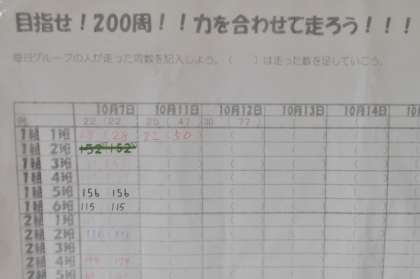 目指せ！200周！！力を合わせて走ろう！！！
毎日グループの人が走った周数を記入しよう。（　）は走った数を足していこう。
10月7日 10月11日 10月12日 10月13日 10月14日
例 22 (22) 25 (47) 30 (77)
1組 1班 28 22 (50)
1組 2班 152 152
1組 3班
1組 4班
1組 5班 156 156
1組 6班 115 115
2組 1班
2組 2班
2組 3班
2組 4班
2組 5班